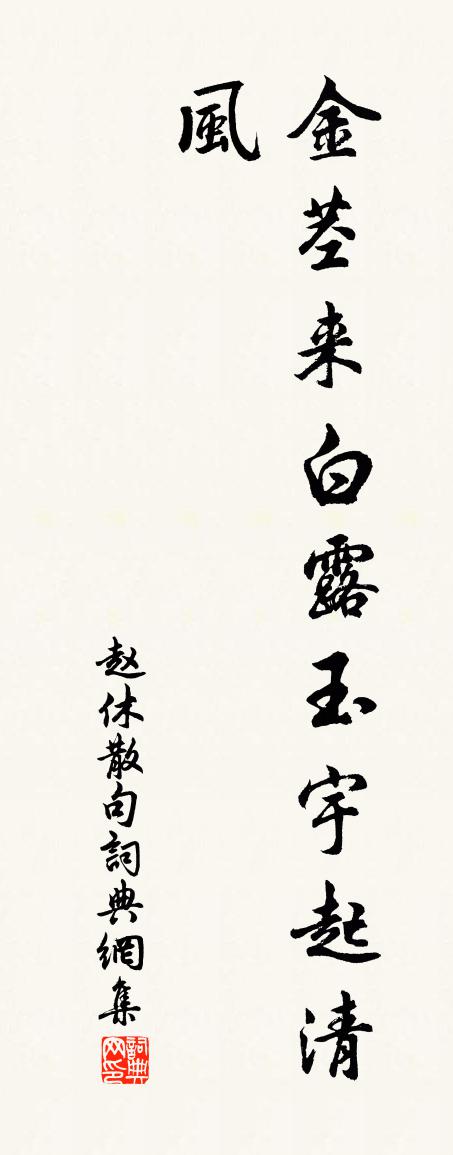 金茎来白露玉宇起清
風
赵休散句詞典網集
詞典
网印